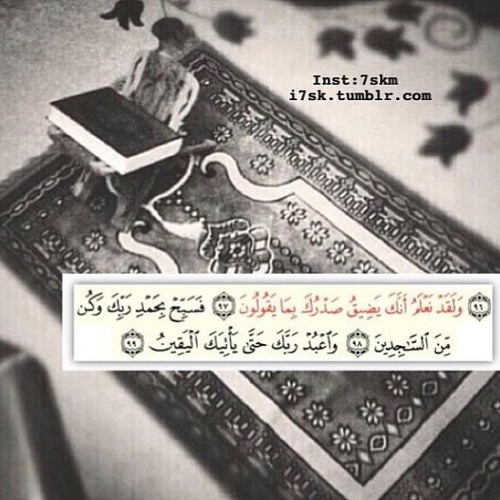 Inst:7skm
i7sk.tumblr.com
﴿٩٦﴾ وَلَقَدْ نَعْلَمُ أَنَّكَ يَضِيقُ صَدْرُكَ بِمَا يَقُولُونَ ﴿٩٧﴾ فَسَبِّحْ بِحَمْدِ رَبِّكَ وَكُن
مِّنَ السَّٰجِدِينَ ﴿٩٨﴾ وَاعْبُدْ رَبَّكَ حَتَّىٰ يَأْتِيَكَ الْيَقِينُ ﴿٩٩﴾